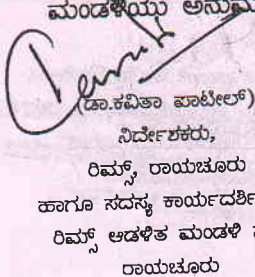 ಮಂಡಳಿಯು
(ಡಾ.ಕವಿತಾ ಪಾಟೀಲ್)
ನಿರ್ದೇಶಕರು,
ರಿಮ್ಸ್, ರಾಯಚೂರು
ಹಾಗೂ ಸದಸ್ಯ ಕಾರ್ಯದರ್ಶಿ
ರಿಮ್ಸ್ ಆಡಳಿತ ಮಂಡಳಿ
ರಾಯಚೂರು